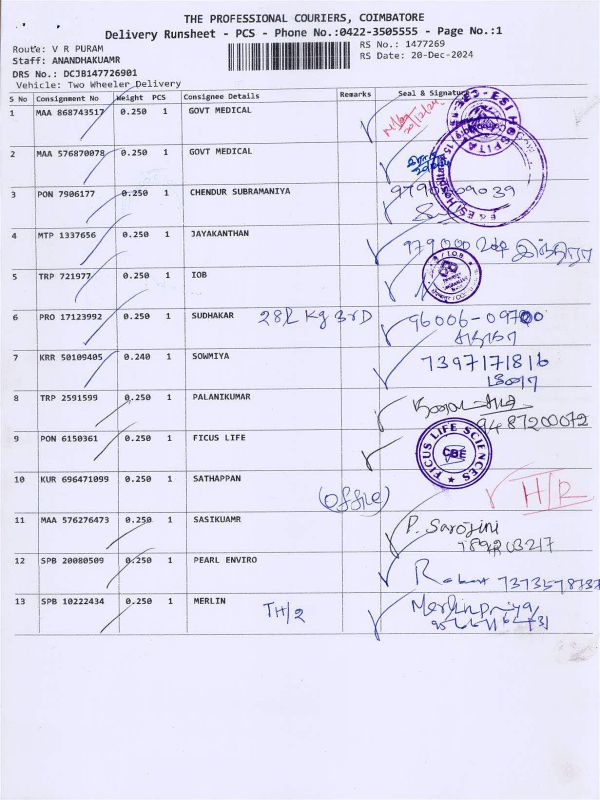 THE PROFESSIONAL COURIERS, COIMBATORE
Delivery Runsheet - PCS - Phone No.:0422-3505555 - Page No.:1
Route: V R PURAM
RS No.: 1477269
Staff: ANANDHAKUAMR
RS Date: 20-Dec-2024
DRS No.: DCJB147726901
Vehicle: Two Wheeler Delivery
S No Consignment No Weight PCS Consignee Details Remarks Seal & Signature
1 MAA 868743517 0.250 1 GOVT MEDICAL 20/12/24
2 MAA 576870078 0.250 1 GOVT MEDICAL
ESI HOSPITAL
3 PON 7906177 0.250 1 CHENDUR SUBRAMANIYA
4 MTP 1337656 0.250 1 JAYAKANTHAN
5 TRP 721977 0.250 1 IOB
6 PRO 17123992 0.250 1 SUDHAKAR 96006-09700
7 KRR 50109405 0.240 1 SOWMIYA 7397171816
8 TRP 2591599 0.250 1 PALANIKUMAR
9487200072
9 PON 6150361 0.250 1 FICUS LIFE
FICUS LIFE SCIENCES
CBE
10 KUR 696471099 0.250 1 SATHAPPAN (Office) H/R
11 MAA 576276473 0.250 1 SASIKUAMR P. Sarojini
12 SPB 20080509 0.250 1 PEARL ENVIRO
13 SPB 10222434 0.250 1 MERLIN TH/2 Merlinpriya